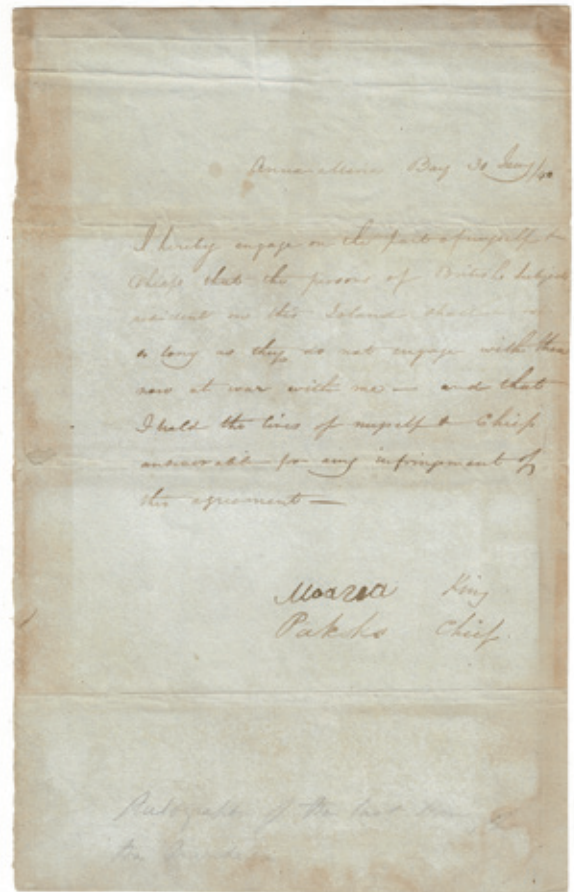 Bay 30 Jany/40
I hereby engage on the part of myself &
Chiefs that the persons of British Subjects
resident in this Island shall
as long as they do not engage with those
now at war with me — and that
I hold the lives of myself & Chiefs
answerable for any infringment of
this agreement —
King
Chief
Autograph of the last King of
the